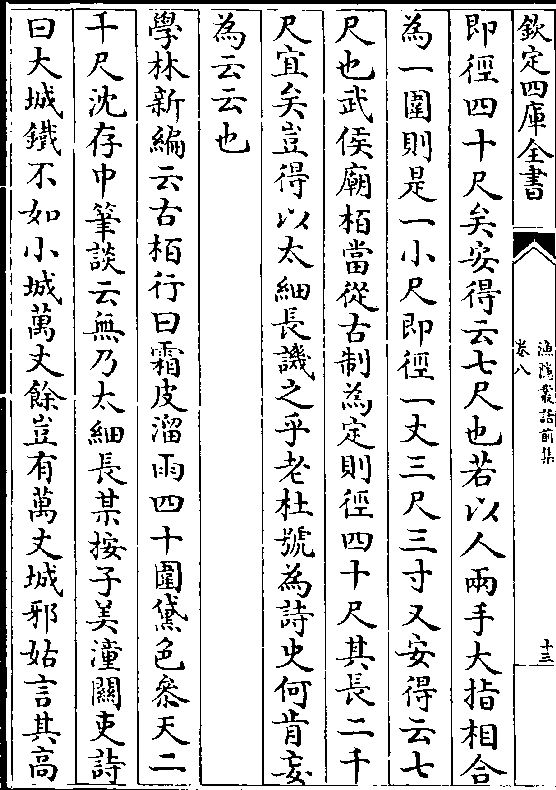 欽定四庫全書
漁隱叢話前集
卷八
十三
即徑四十尺矣安得云七尺也若以人兩手大指相合
為一圍則是一小尺即徑一丈三尺三寸又安得云七
尺也武侯廟栢當從古制為定則徑四十尺其長二千
尺宜矣豈得以太細長譏之乎老杜號為詩史何肯妄
為云云也
學林新編云古栢行曰霜皮溜雨四十圍黛色叅天二
千尺沈存中筆談云無乃太細長某按子美潼關吏詩
曰大城鐵不如小城萬丈餘豈有萬丈城邪姑言其高